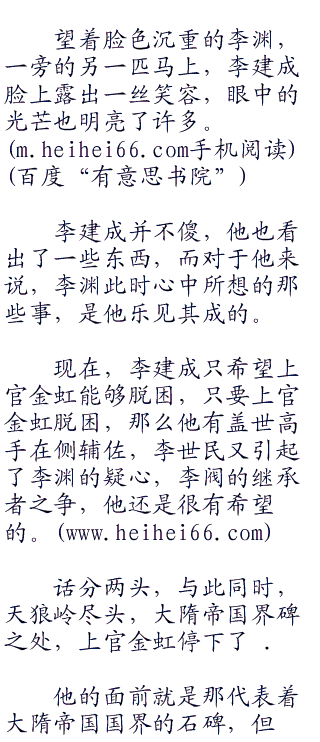 望着脸色沉重的李渊，
一旁的另一匹马上，李建成
脸上露出一丝笑容，眼中的
光芒也明亮了许多。
(m.heihei66.com手机阅读)
(百度“有意思书院”)
李建成并不傻，他也看
出了一些东西，而对于他来
说，李渊此时心中所想的那
些事，是他乐见其成的。
现在，李建成只希望上
官金虹能够脱困，只要上官
金虹脱困，那么他有盖世高
手在侧辅佐，李世民又引起
了李渊的疑心，李阀的继承
者之争，他还是很有希望
的。(www.heihei66.com)
话分两头，与此同时，
天狼岭尽头，大隋帝国界碑
之处，上官金虹停下了 .
他的面前就是那代表着
大隋帝国国界的石碑，但